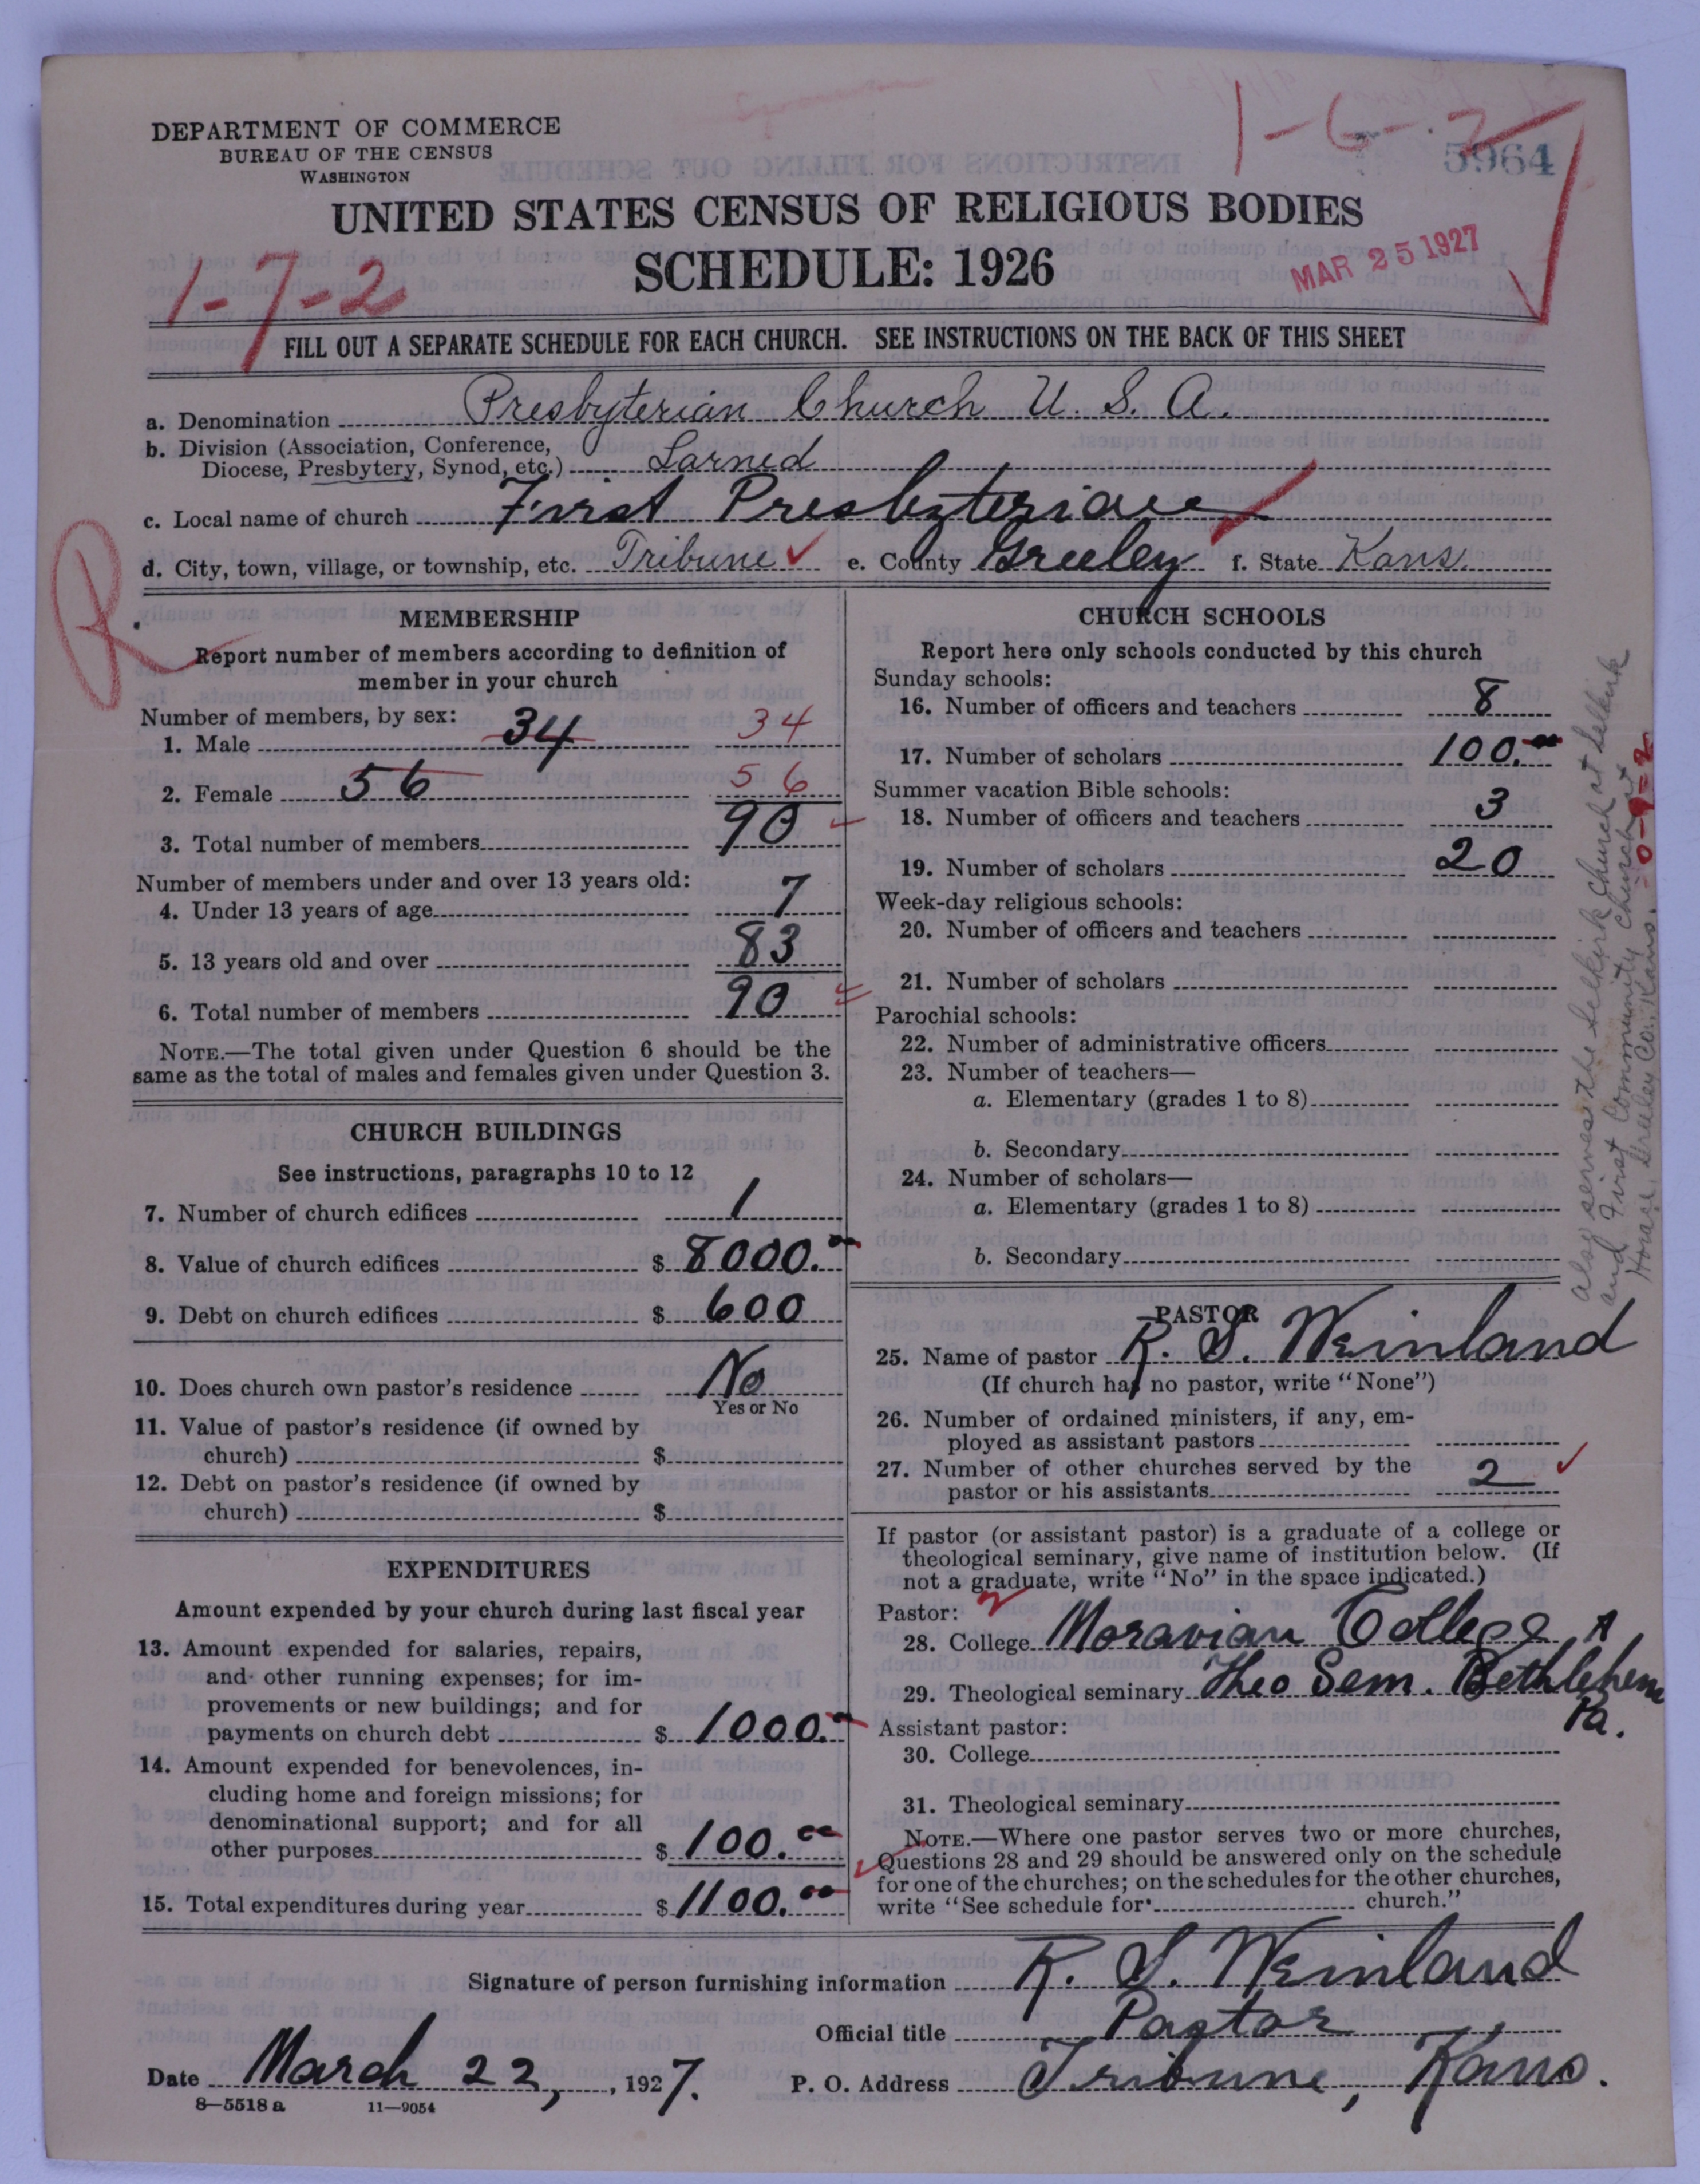 DEPARTMENT OF COMMERCE
BUREAU OF THE CENSUS
WASHINGTON
1-6-2
5964
UNITED STATES CENSUS OF RELIGIOUS BODIES
SCHEDULE: 1926
MAR 25 1927
1-7-2
FILL OUT A SEPARATE SCHEDULE FOR EACH CHURCH. SEE INSTRUCTIONS ON THE BACK OF THIS SHEET
a. Denomination Presbyterian Church U. S. A.
b. Division (Association, Conference,
Diocese, Presbytery, Synod, etc.) Larned
c. Local name of church First Presbyterian
d. City, town, village, or township, etc. Tribune e. County Greeley f. State Kans.
R
MEMBERSHIP
Report number of members according to definition of
member in your church
Number of members, by sex:
1. Male 34 34
2. Female 56 56
3. Total number of members 90
Number of members under and over 13 years old:
4. Under 13 years of age 7
5. 13 years old and over 83
6. Total number of members 90
NOTE.—The total given under Question 6 should be the
same as the total of males and females given under Question 3.
CHURCH BUILDINGS
See instructions, paragraphs 10 to 12
7. Number of church edifices 1
8. Value of church edifices $ 8000.00
9. Debt on church edifices $ 600
10. Does church own pastor's residence No
Yes or No
11. Value of pastor's residence (if owned by
church) $
12. Debt on pastor's residence (if owned by
church) $
EXPENDITURES
Amount expended by your church during last fiscal year
13. Amount expended for salaries, repairs,
and other running expenses; for im-
provements or new buildings; and for
payments on church debt $ 1000.
14. Amount expended for benevolences, in-
cluding home and foreign missions; for
denominational support; and for all
other purposes $ 100.00
15. Total expenditures during year $ 1100.00
CHURCH SCHOOLS
Report here only schools conducted by this church
Sunday schools:
16. Number of officers and teachers 8
17. Number of scholars 100.00
Summer vacation Bible schools:
18. Number of officers and teachers 3
19. Number of scholars 20
Week-day religious schools:
20. Number of officers and teachers
21. Number of scholars
Parochial schools:
22. Number of administrative officers
23. Number of teachers—
a. Elementary (grades 1 to 8)
b. Secondary
24. Number of scholars—
a. Elementary (grades 1 to 8)
b. Secondary
Also serves the Selkirk church at Selkirk
and First Community church at
Horace, Greeley Co., Kans.
0-9-2
PASTOR
25. Name of pastor R. S. Weinland
(If church has no pastor, write "None")
26. Number of ordained ministers, if any, em-
ployed as assistant pastors
27. Number of other churches served by the
pastor or his assistants 2
If pastor (or assistant pastor) is a graduate of a college or
theological seminary, give name of institution below. (If
not a graduate, write "No" in the space indicated.)
Pastor:
28. College Moravian College &
29. Theological seminary Theo Sem. Bethlehem
Pa.
Assistant pastor:
30. College
31. Theological seminary
NOTE.—Where one pastor serves two or more churches,
Questions 28 and 29 should be answered only on the schedule
for one of the churches; on the schedules for the other churches,
write "See schedule for church."
Signature of person furnishing information R. S. Weinland
Official title Pastor
Date March 22, 1927. P. O. Address Tribune, Kans.
8—5518 a 11—9054